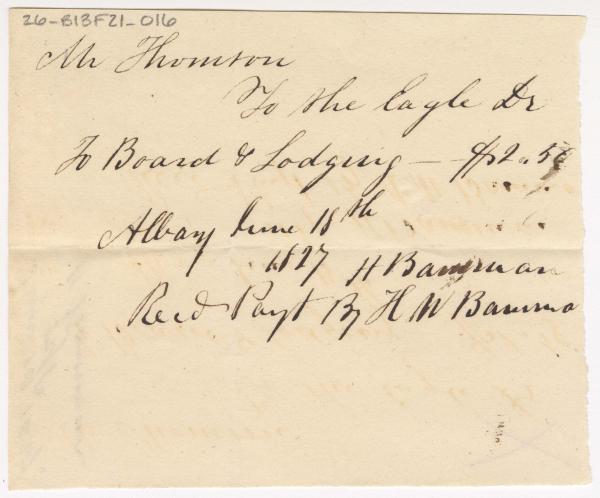 26-B13F21-016
Mr Thomson
To the Eagle Dr
To Board & Lodging — $2.50
Albany June 18th
1827 H
Recd Payt By H W